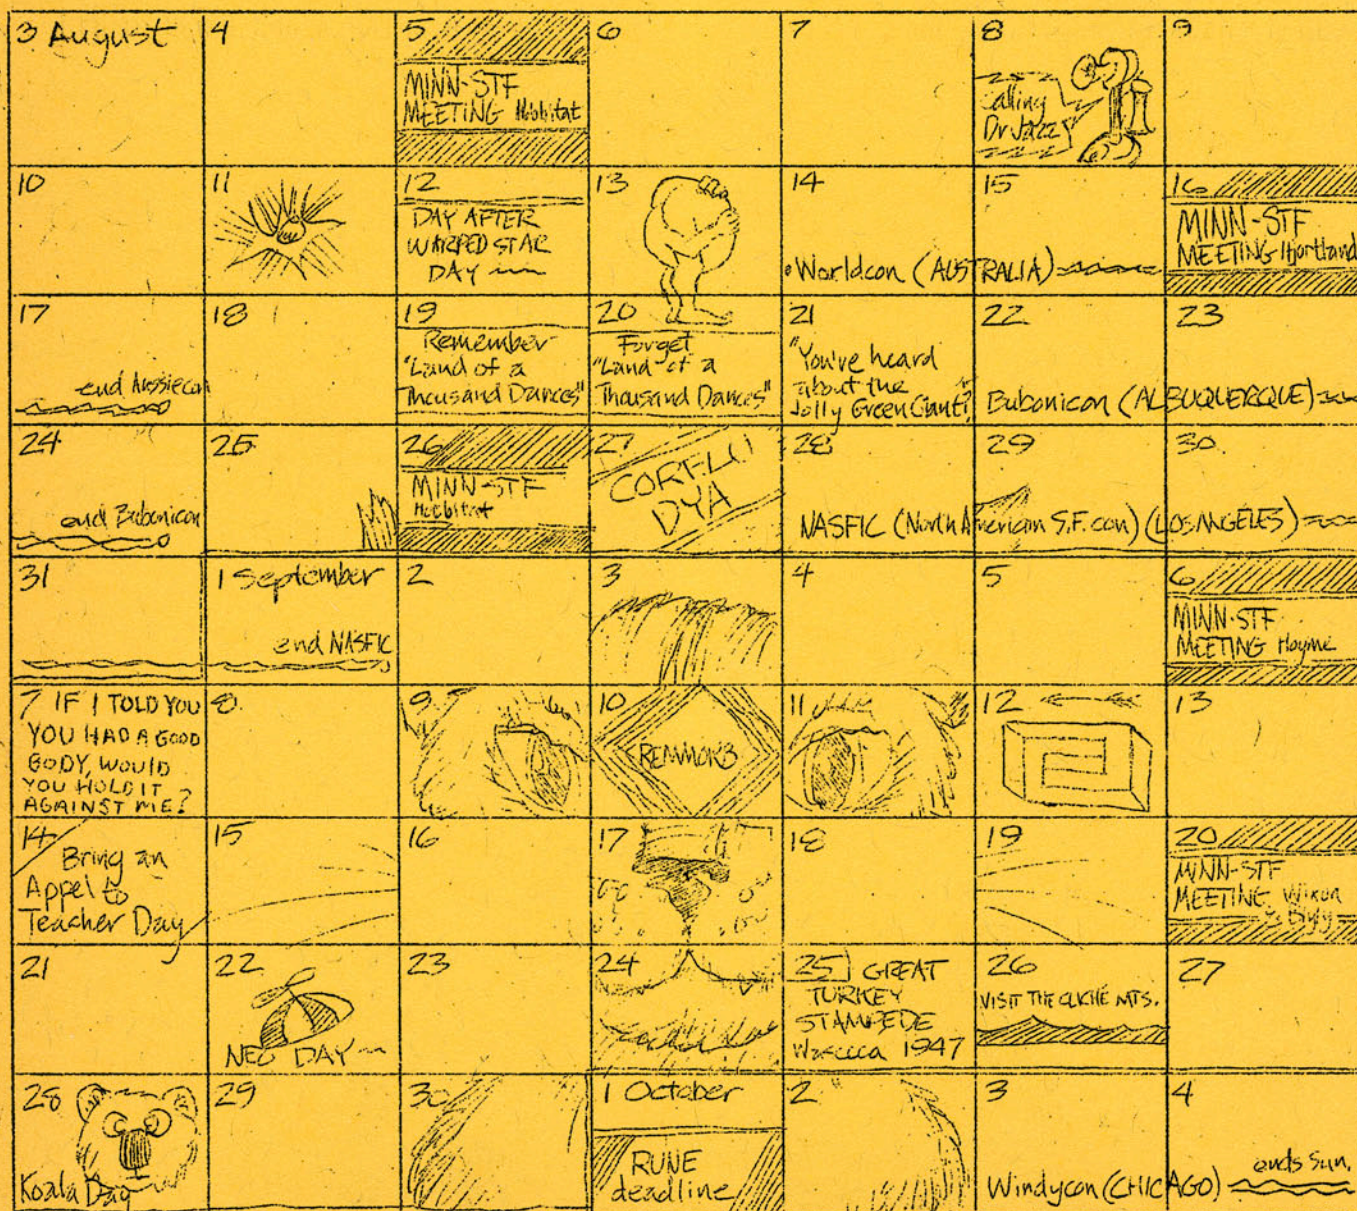 3 August
4
5
MINN-STF
MEETING Hobbitat
6
7
8
Calling
Dr Jazz
9
10
11
12
DAY AFTER
WARPED STAR
DAY
13
14
15
Worldcon (AUSTRALIA)
16
MINN-STF
MEETING Hjortland
17
end Aussiecon
18
19
Remember
"Land of a
Thousand Dances"
20
Forget
"Land of a
Thousand Dances"
21
"You've heard
about the
Jolly Green Giant?
22
23
Bubonicon (ALBUQUERQUE)
24
end Bubonicon
25
26
MINN-STF
Hobbitat
27
CORFLU
DYA
28
29
30
NASFIC (North American S.F. con) (LOS ANGELES)
31
1 September
end NASFIC
2
3
4
5
6
MINN-STF
MEETING Hayme
7 IF I TOLD YOU
YOU HAD A GOOD
BODY, WOULD
YOU HOLD IT
AGAINST ME?
8
9
10
11
12
13
14
Bring an
Appel to
Teacher Day
15
16
17
18
19
20
MINN-STF
MEETING Wixon
21
22
NEO DAY
23
24
25 GREAT
TURKEY
STAMPEDE
Waseca 1947
26
VISIT THE CLICHÉ MTS.
27
28
Koala Day
29
30
1 October
RUNE
deadline
2
3
4
Windycon (CHICAGO) ends Sun.